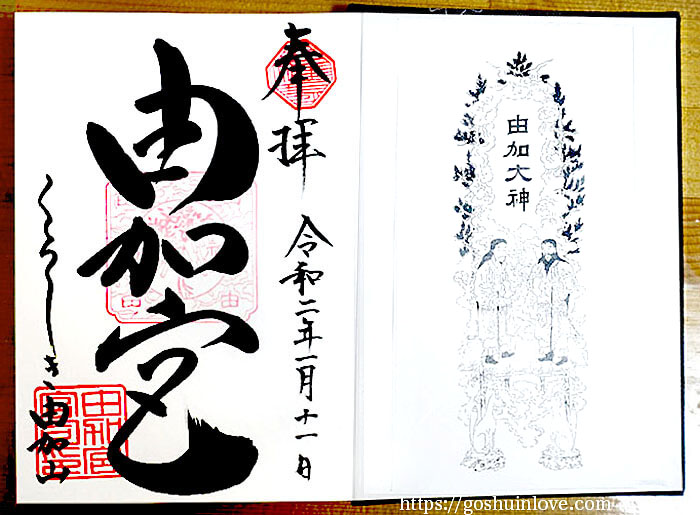 奉拝
令和二年一月十一日
由加宮
くらしき由加山
由加大神
https://goshuinlove.com